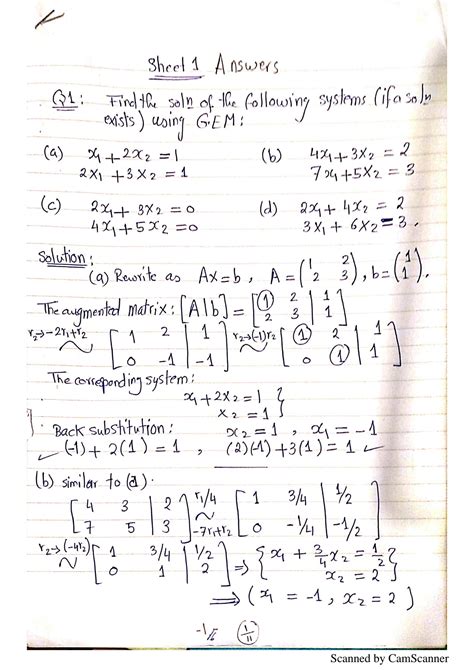 Sheet 1 Answers
Q1: Find the soln of the following systems (if a soln
exists) using G.E.M:
(a) x1 + 2x2 = 1 (b) 4x1 + 3x2 = 2
2x1 + 3x2 = 1 7x1 + 5x2 = 3
(c) 2x1 + 3x2 = 0 (d) 2x1 + 4x2 = 2
4x1 + 5x2 = 0 3x1 + 6x2 = 3.
Solution:
(a) Rewrite as Ax=b, A = (1 2 2 3), b = (1 1).
The augmented matrix: [A|b] = [1 2 | 1
2 3 | 1]
r2→-2r1+r2 ~ [1 2 | 1 r2→(-1)r2 ~ [1 2 | 1
0 -1 | -1] 0 1 | 1]
The corresponding system:
x1 + 2x2 = 1 }
x2 = 1 }
Back substitution: x2 = 1, x1 = -1
✓ (-1) + 2(1) = 1, (2)(-1) + 3(1) = 1 ✓
(b) similar to (a).
[4 3 | 2 r1/4 ~ [1 3/4 | 1/2
7 5 | 3] -7r1+r2 0 -1/4 | -1/2]
r2→(-4r2) ~ [1 3/4 | 1/2 ⇒ { x1 + 3/4 x2 = 1/2 }
0 1 | 2] x2 = 2
⇒ (x1 = -1, x2 = 2)
1/11
Scanned by CamScanner